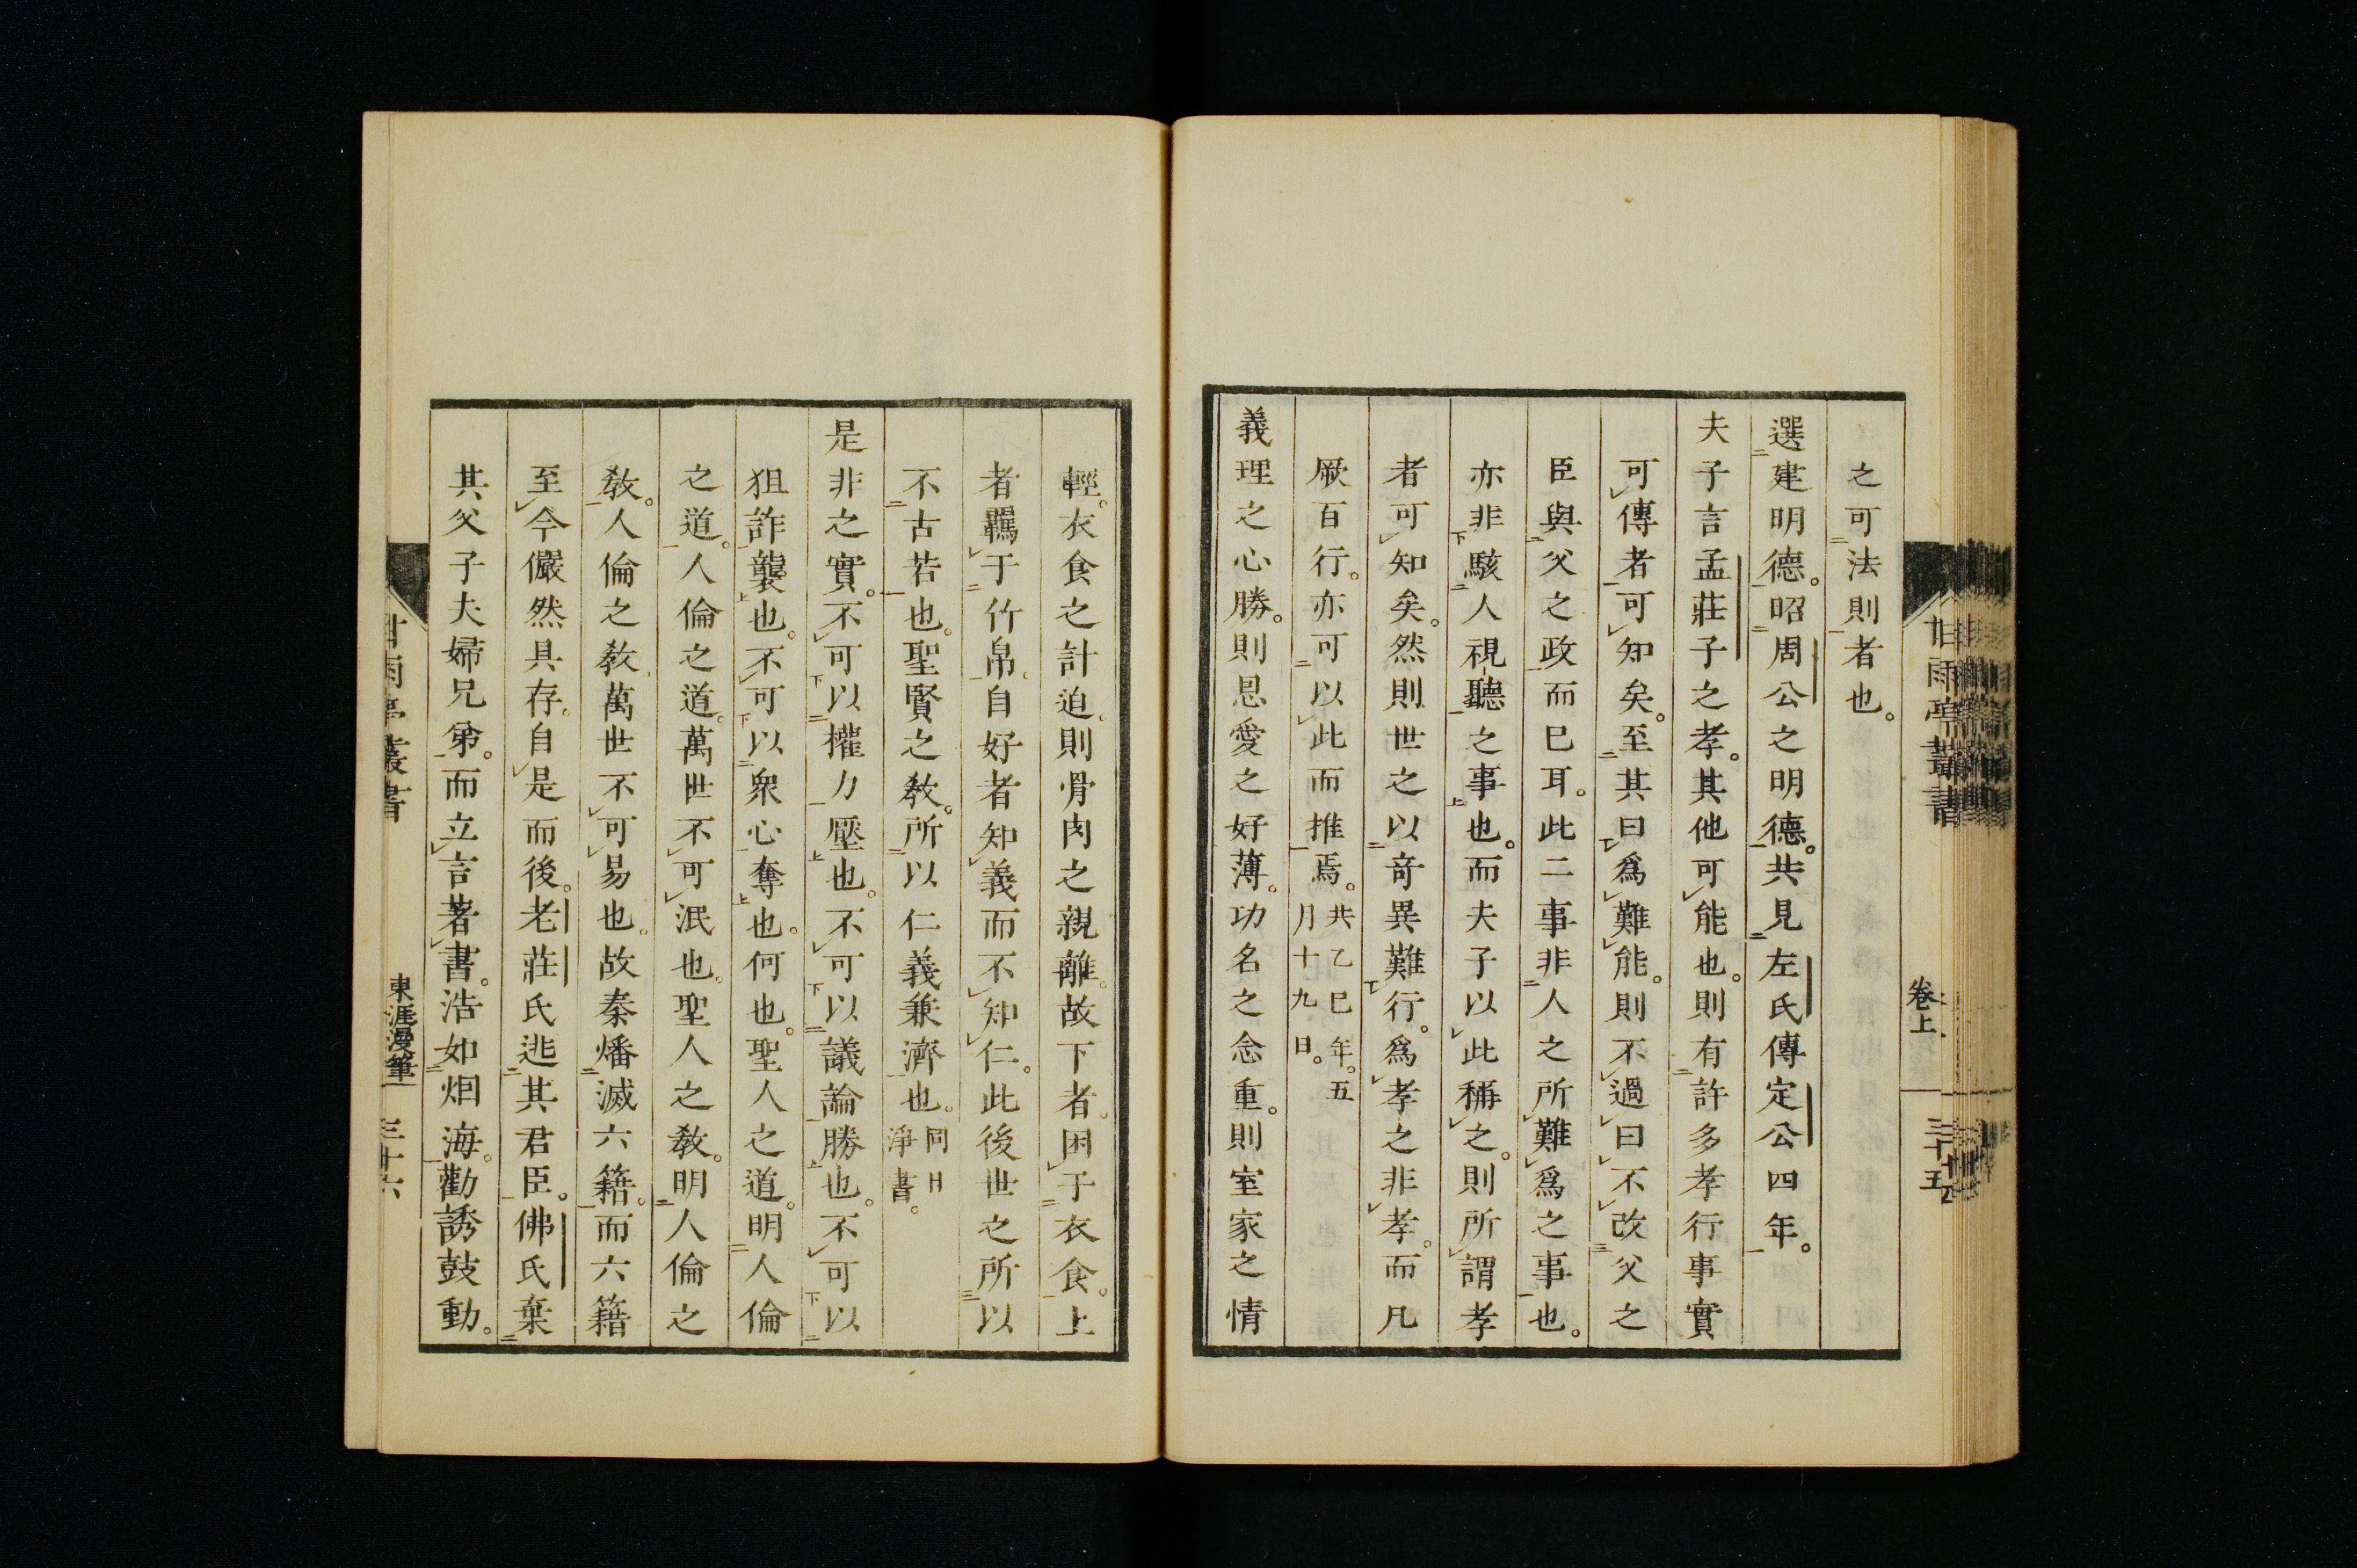 之可法則者也。
選建明德。昭周公之明德。共見左氏傳定公四年。
夫子言孟莊子之孝。其他可能也。則有許多孝行事實
可傳者可知矣。至其曰爲難能。則不過曰不改父之
臣與父之政而已耳。此二事非人之所難爲之事也。
亦非駭人視聽之事也。而夫子以此稱之。則所謂孝
者可知矣。然則世之以奇異難行。爲孝之非孝。而凡
厥百行。亦可以此而推焉。共乙巳年。五月十九日。
義理之心勝。則恩愛之好薄。功名之念重。則室家之情
輕。衣食之計迫。則骨肉之親離。故下者。困于衣食。上
者羈于竹帛。自好者知義而不知仁。此後世之所以
不古若也。聖賢之教。所以仁義兼濟也。同日淨書。
是非之實。不可以權力壓也。不可以議論勝也。不可以
狙詐襲也。不可以衆心奪也。何也。聖人之道。明人倫
之道。人倫之道。萬世不可泯也。聖人之教。明人倫之
教。人倫之教。萬世不可易也。故秦燔滅六籍。而六籍
至今儼然具存。自是而後。老莊氏逃其君臣。佛氏棄
其父子夫婦兄弟。而立言著書。浩如烟海。勸誘鼓動。
甘雨亭叢書 卷上 三十五
甘雨亭叢書 東涯漫筆 三十六